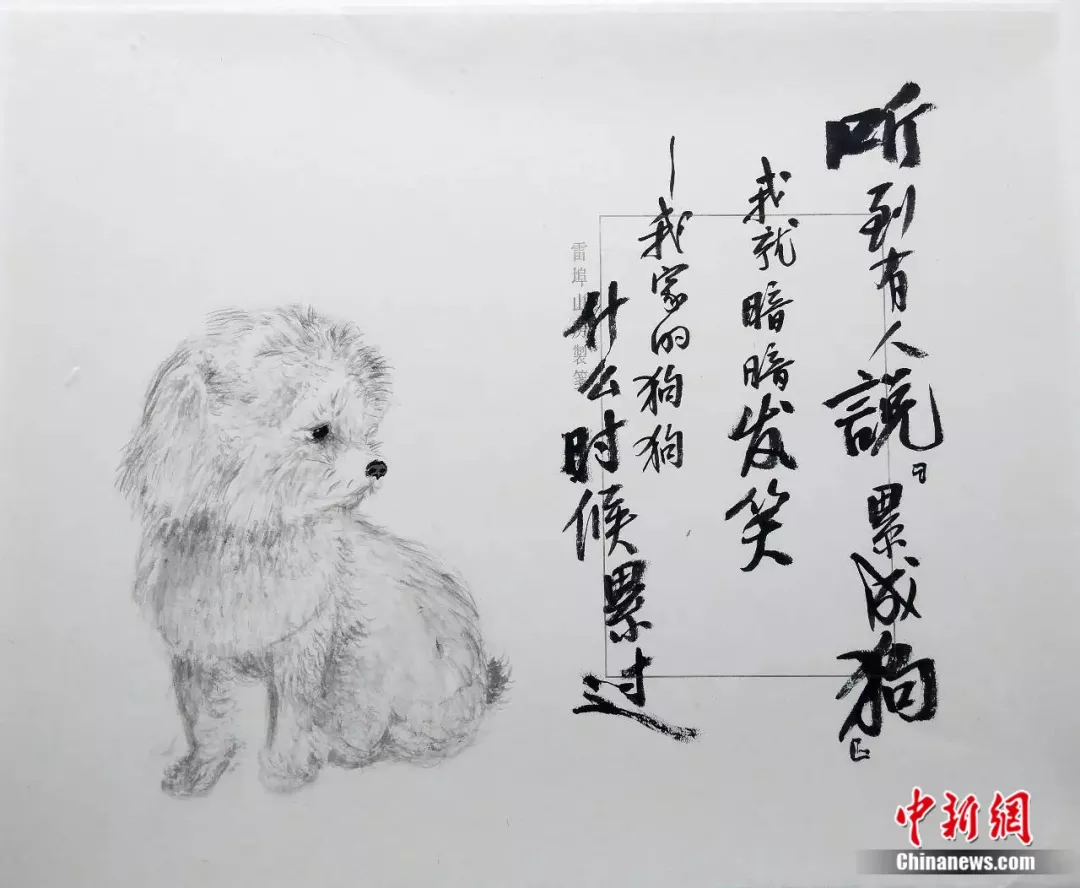 听到有人說。「累成狗」
我就暗暗发笑
—我家的狗狗
什么时候累过
雷埠山製
中新網
Chinanews.com